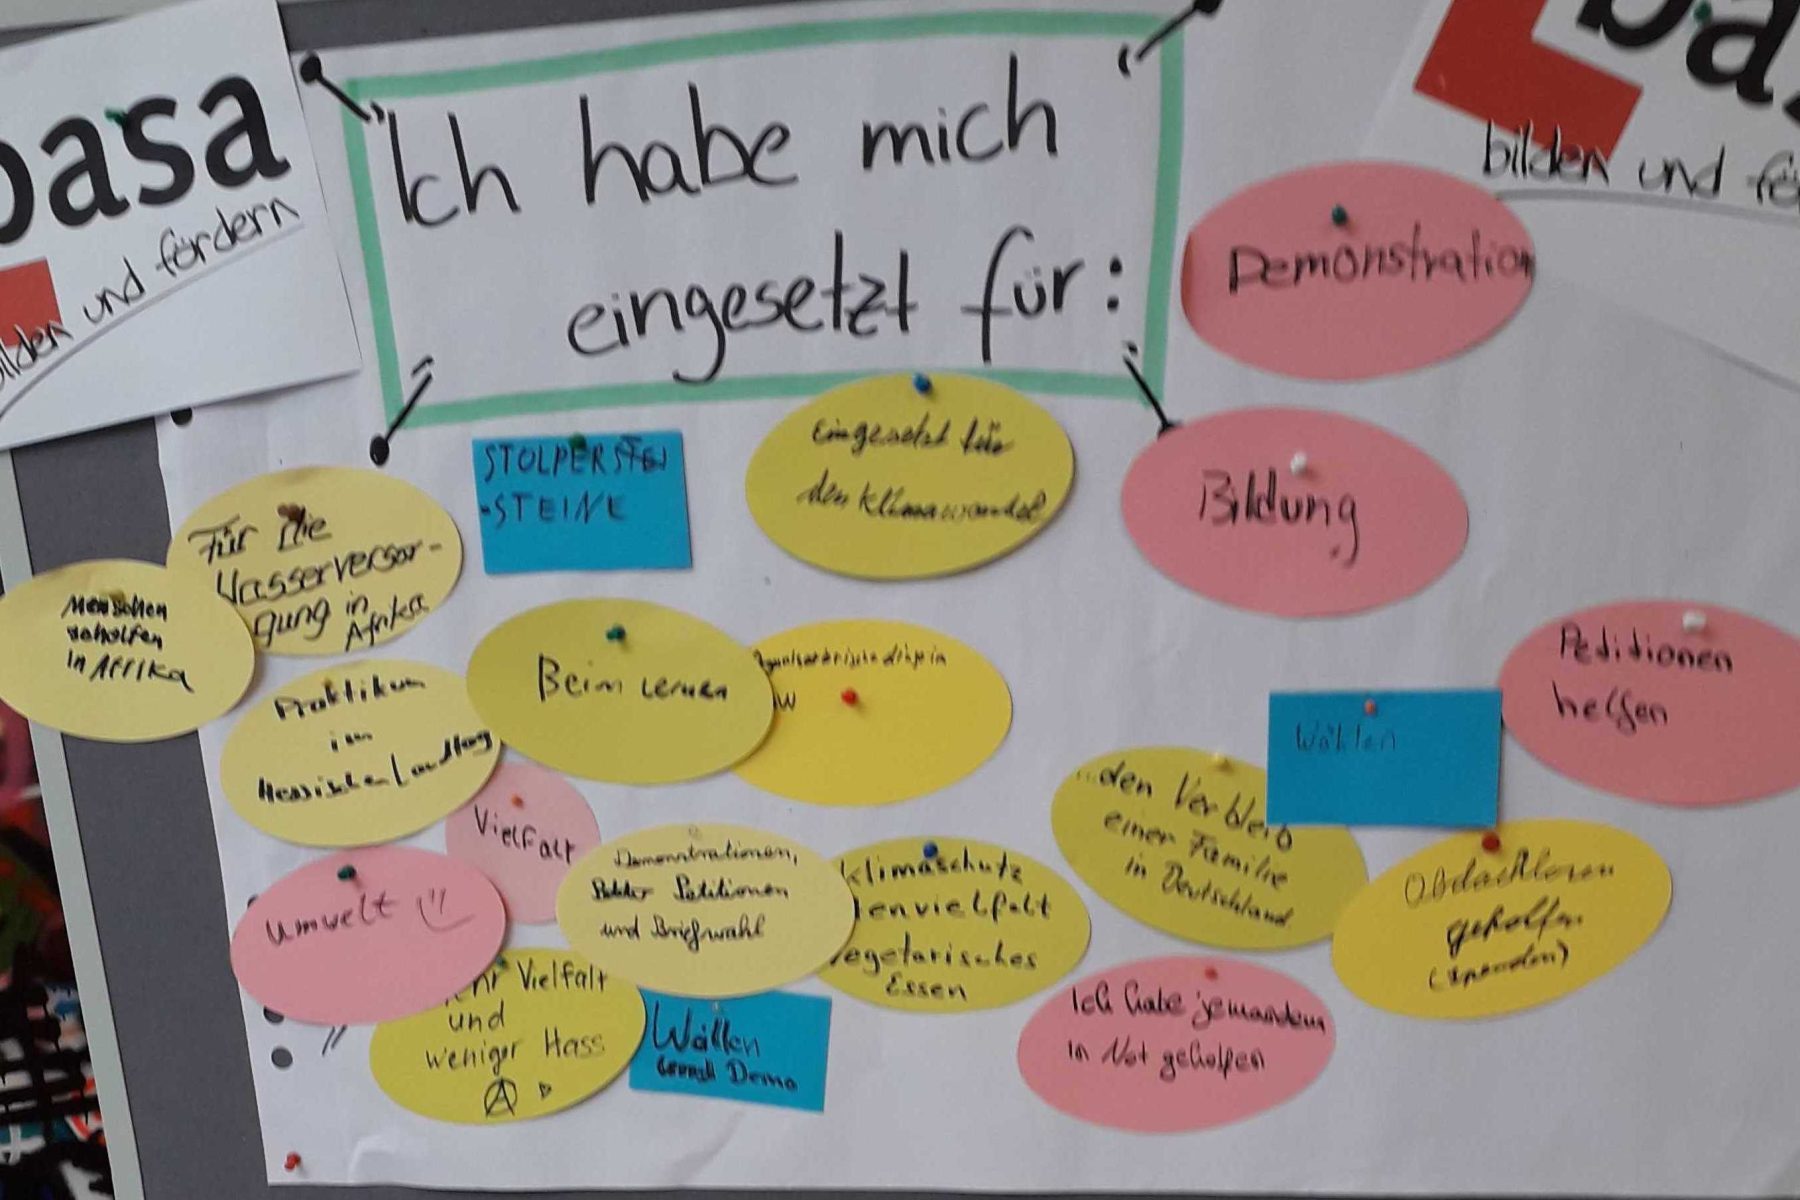 basa
bilden und fördern
ba
bilden und fö
Ich habe mich
eingesetzt für:
Demonstration
STOLPERSTEI
-STEINE
Eingesetzt für
den Klimawandel
Bildung
Für die
Wasserversor-
gung in
Afrika
Menschen
geholfen
in Afrika
Praktikum
im
Hessischen Landtag
Beim Lernen
w
Petitionen
helfen
Wählen
...den Verbleib
einer Familie
in Deutschland
Obdachlosen
geholfen
(spenden)
Vielfalt
Umwelt
Demonstrationen,
Petitionen
und Briefwahl
Klimaschutz
envielfalt
egetarisches
Essen
Vielfalt
und
weniger Hass
A
Wählen
Demo
Ich habe jemandem
in Not geholfen